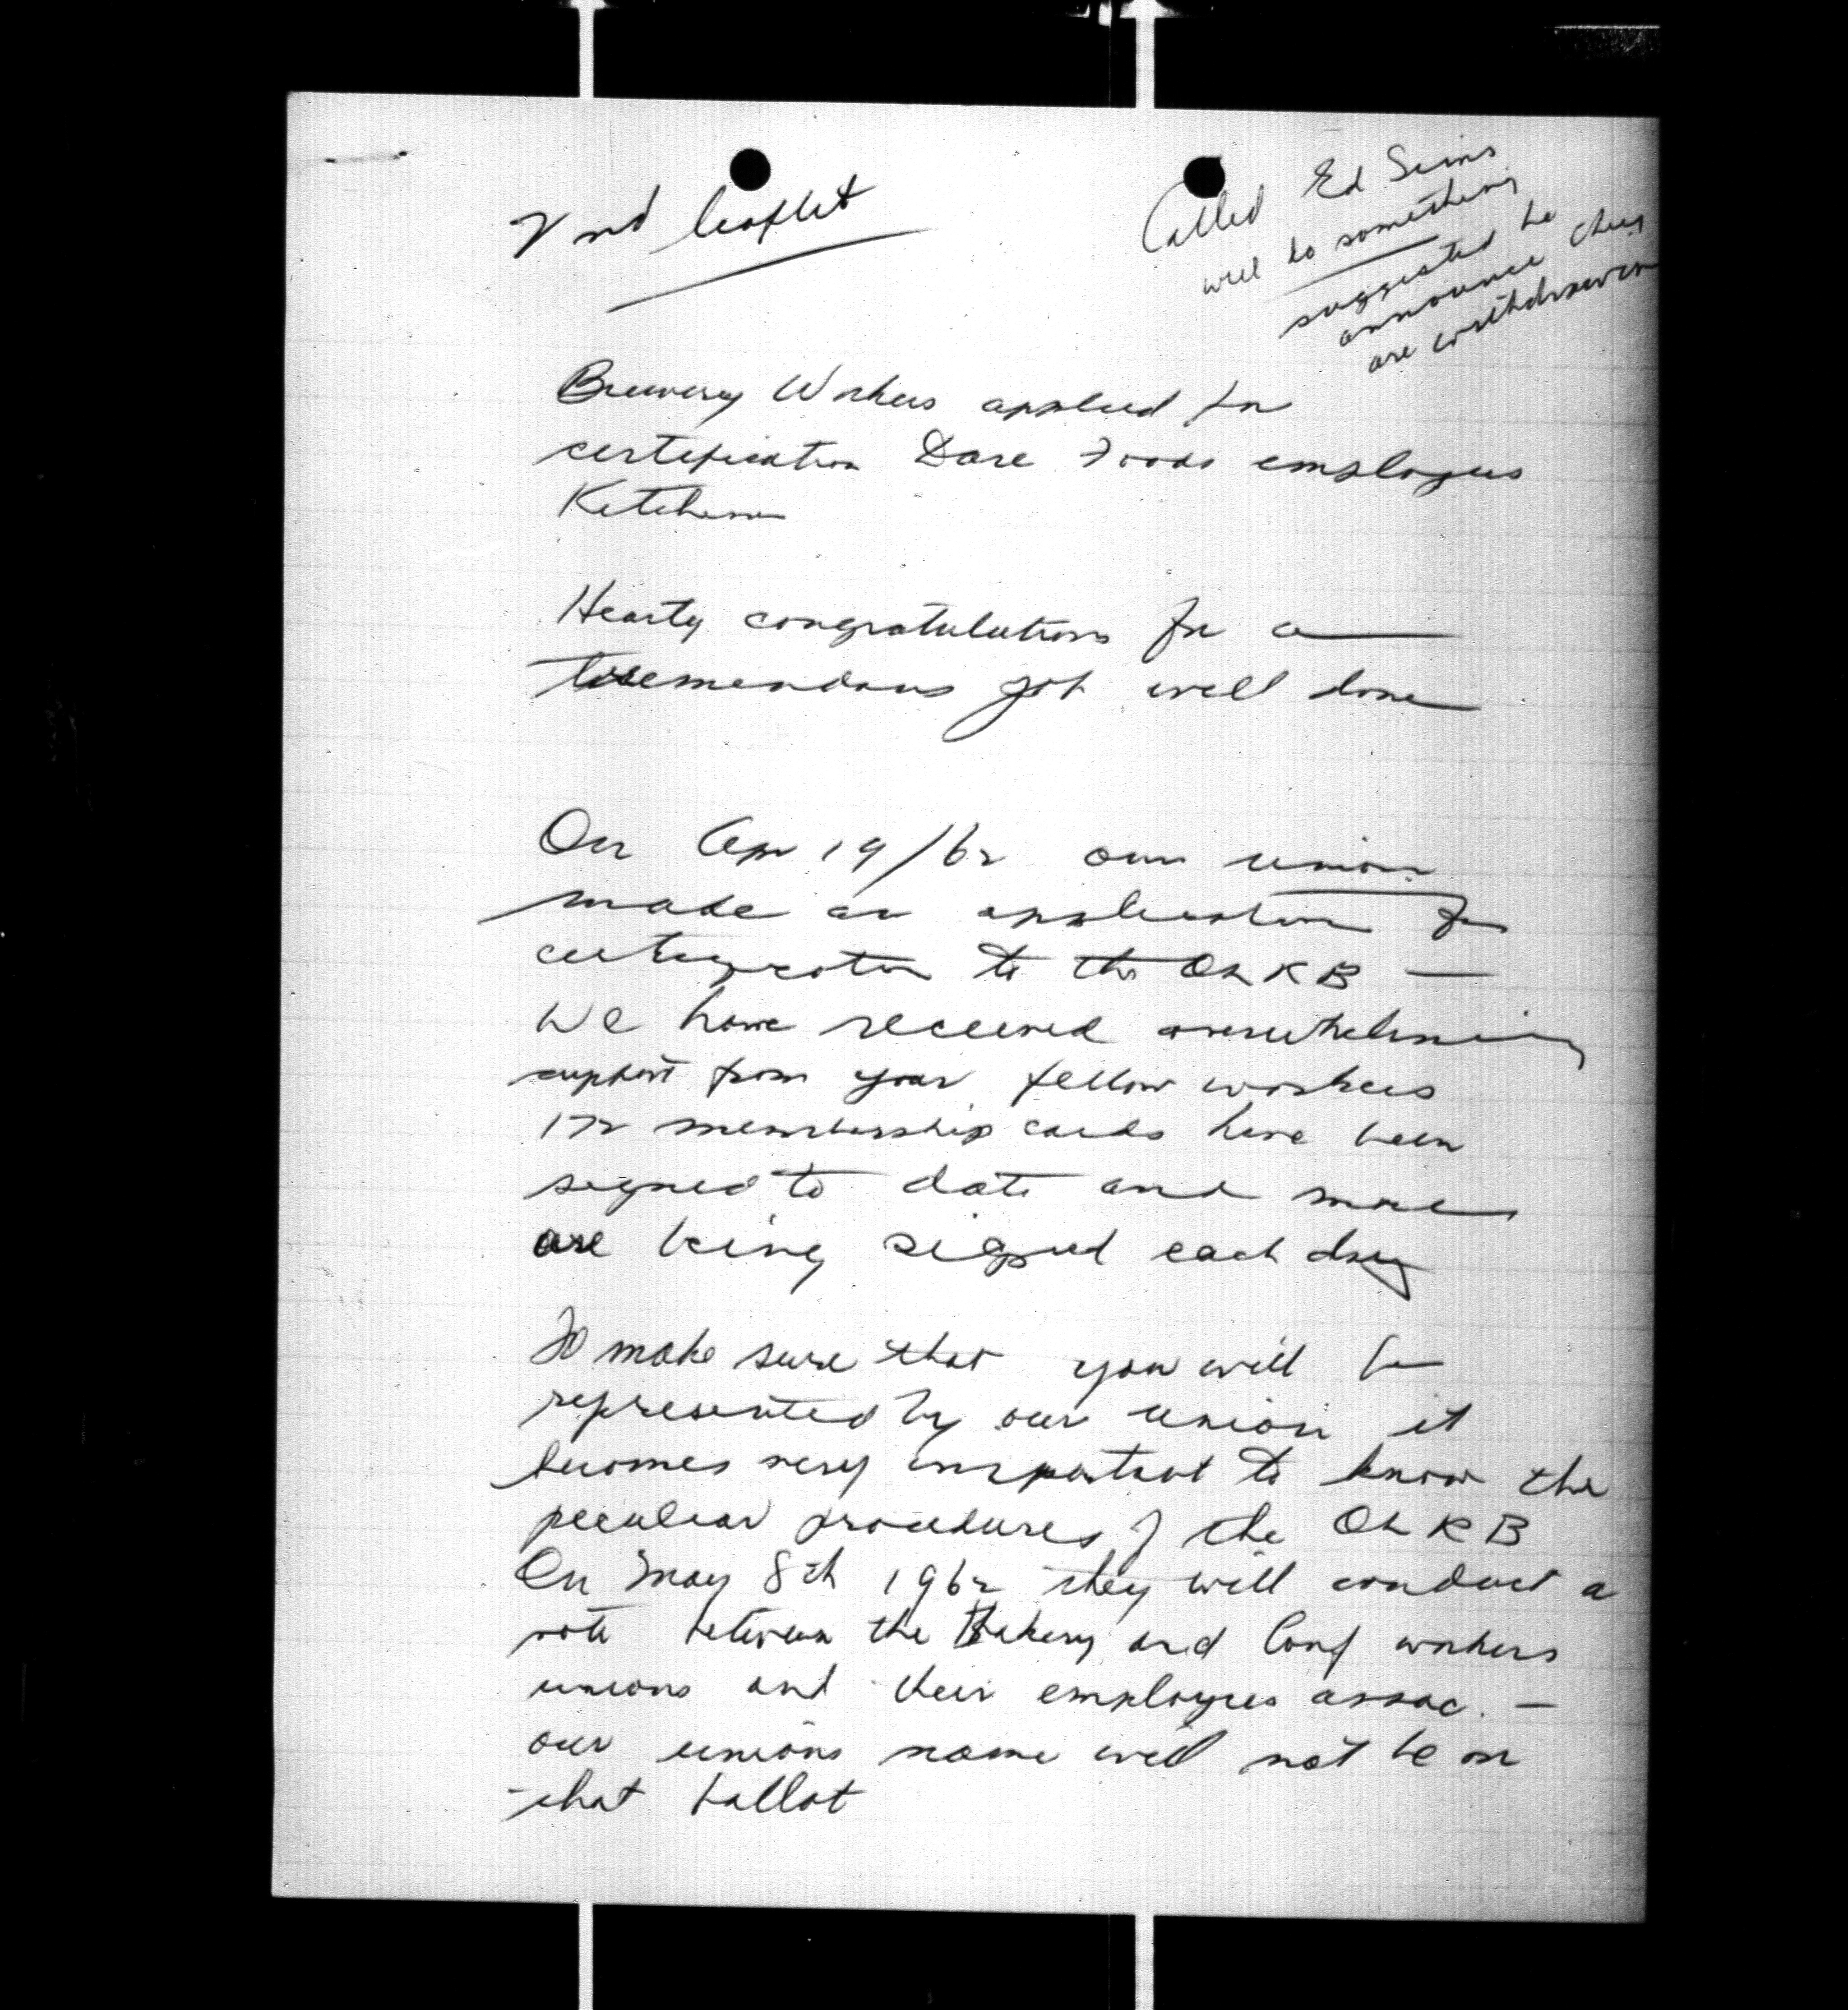 2nd leaflet
Called Ed Sims
will do something
suggested he
announce they
are withdrawing
Brewery Workers applied for
certification Dare Foods employees
Kitchener
Hearty congratulations for a
tremendous job well done
On Apr 19/62 our union
made an application for
certification to the OLRB —
We have received overwhelming
support from your fellow workers
172 membership cards have been
signed to date and more
are being signed each day
To make sure that you will be
represented by our union it
becomes very important to know the
peculiar procedures of the OLRB
On May 8th 1962 they will conduct a
vote between the Bakery and Conf workers
unions and their employees assoc. —
our unions name will not be on
that ballot